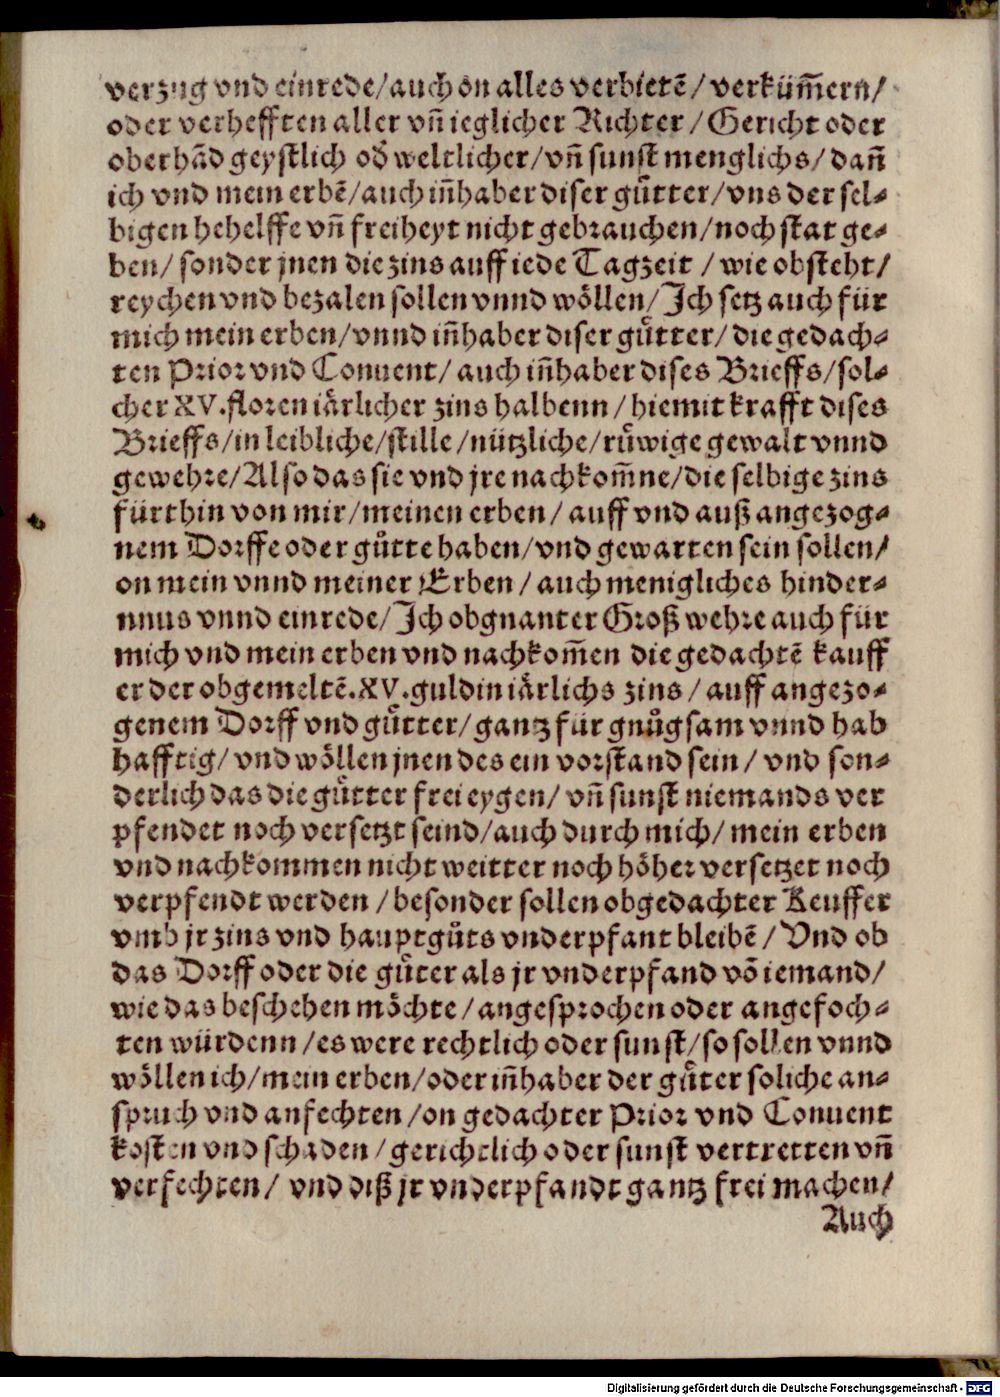 verzug vnd einrede/auch on alles verbietẽ/ verküm̃ern/
oder verhefften aller vñ ieglicher Richter/ Gericht oder
oberhãd geystlich od̕ weltlicher/vñ sunst menglichs/ dañ
ich vnd mein erbẽ/auch iñhaber diser guͤtter/vns der sel-
bigen hehelffe vñ freiheyt nicht gebrauchen/noch stat ge-
ben/ sonder jnen die zins auff iede Tagzeit / wie obsteht/
reychen vnd bezalen sollen vnnd woͤllen/ Ich setz auch für
mich mein erben/vnnd iñhaber diser guͤtter/ die gedach-
ten Prior vnd Conuent/ auch iñhaber dises Brieffs/sol-
cher XV.floren iaͤrlicher zins halbenn / hiemit krafft dises
Brieffs/in leibliche/stille/nützliche/ruͤwige gewalt vnnd
gewehre/Also das sie vnd jre nachkom̃ne/die selbige zins
fürthin von mir/meinen erben/ auff vnd auß angezog-
nem Dorffe oder guͤtte haben/vnd gewarten sein sollen/
on mein vnnd meiner Erben / auch menigliches hinder-
nnus vnnd einrede/ Ich obgnanter Groß wehre auch für
mich vnd mein erben vnd nachkom̃en die gedachtẽ kauff
er der obgemeltẽ.XV.guldin iaͤrlichs zins / auff angezo-
genem Dorff vnd guͤtter/ gantz für gnuͦgsam vnnd hab
hafftig/ vnd woͤllen jnen des ein vorstand sein / vnd son-
derlich das die guͤtter frei eygen/ vñ sunst niemands ver
pfendet noch versetzt seind/auch durch mich/ mein erben
vnd nachkommen nicht weitter noch hoͤher versetzet noch
verpfendt werden / besonder sollen obgedachter Keuffer
vmb jr zins vnd hauptguͦts vnderpfant bleibẽ / Vnd ob
das Dorff oder die guͤter als jr vnderpfand võ iemand/
wie das beschehen moͤchte/angesprochen oder angefoch-
ten würdenn /es were rechtlich oder sunst/so sollen vnnd
woͤllen ich/mein erben/oder iñhaber der guͤter soliche an-
spruch vnd anfechten /on gedachter Prior vnd Conuent
kosten vnd schaden / gerichtlich oder sunst vertretten vñ
verfechten/ vnd diß jr vnderpfandt gantz frei machen/
Auch
Digitalisierung gefördert durch die Deutsche Forschungsgemeinschaft - DFG